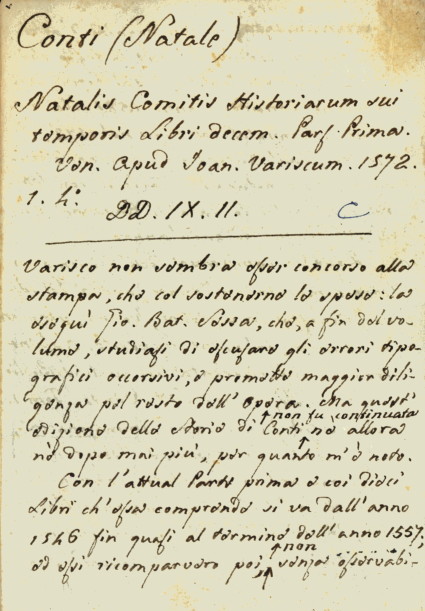 Conti (Natale)
Natalis Comitis Historiarum sui
temporis Libri decem. Pars Prima.
Ven. Apud Joan. Variscum. 1572.
1. 4.º
DD. IX. 11. C
Varisco non sembra esser concorso alla
stampa, che col sostenerne le spese: la
eseguì Gio. Bat. Sessa, che, a fin del vo-
lume, studiasi di escusare gli errori tipo-
grafici occorsivi, e promette maggior dili-
genza pel resto dell' Opera. Ma quest'
non fu continuata
edizione delle Storie di Conti nè allora
nè dopo mai più, per quanto m'è noto.
Con l'attual Parte prima e coi dieci
Libri ch'essa comprende si va dall'anno
1546 fin quasi al termine dell' anno 1557;
non
ed essi ricomparvero poi, senza osservabi-